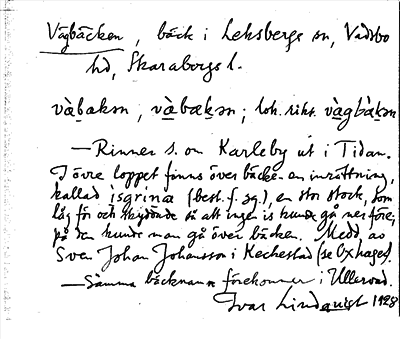 Vägbäcken, bäck i Leksbergs sn, Vadsbo
hd, Skaraborgs l.
và̱bakən, và̱bækən; lok. riks. và̱gbàkən
— Rinner s. om Karleby ut i Tidan.
I övre loppet finns över bäcken en inrättning,
kallad isgrina (best. f. sg.), en stor stock, som
låg för och skyddade så att ingen is kunde gå ner före;
på den kunde man gå över bäcken. Medd. av
Sven Johan Johansson i Kechestad (se Oxhagen).
— Samma bäcknamn förekommer i Ullervad.
Ivar Lindquist 1928